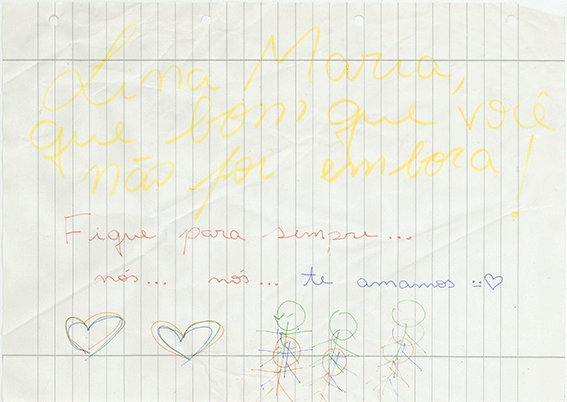 Lina Maria,
que bom que você
não foi embora!
Fique para sempre...
nós... nós... te amamos :♡